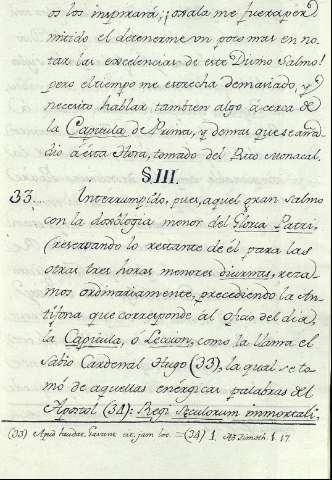 os los inspirará; ¡ojala me fuera per
mitido el detenerme un poco mas en no
tar las excelencias de este Divino Salmo!
pero el tiempo me estrecha demasiado, y
necesito hablar tambien algo á cerca de
la Capitula de Prima, y demas que se aña
dio á esta Hora, tomado del Rito Monacal.
§. III.
33.... Interrumpido, pues, aquel gran Salmo
con la doxologia menor del Gloria Patri,
(reservando lo restante de él para las
otras tres horas menores diurnas, reza
mos ordinariamente, precediendo la An
tifona que corresponde al oficio del dia,
la Capitula, o Leccion, como la llama el
Sabio Cardenal Hugo (33), la qual se to
mó de aquellas enérgicas palabras del
Apostol (34): Regi Sæculorum inmortali,
(33) Apud laudat. Gavant. jam loc. = (34) 1. Ad Timoth. 1. 17.